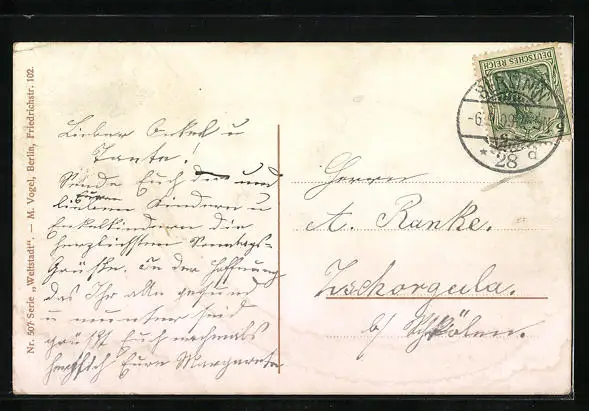 Nr. 507 Serie „Weltstadt“. — M. Vogel, Berlin, Friedrichstr. 102.
DEUTSCHES REICH
BERLIN NW
28 d
Lieber Onkel u
Tante!
Sende Euch die und
Euren
lieben Kindern u
Enkelkindern die
herzlichsten Sonntags-
Grüße. In der Hoffnung
das Ihr alle gesund
u munter seid
grüßt Euch nochmals
herzlich Eure Margarete
Herrn
A. Ranke.
Zschorgula.
b/ Schkölen.